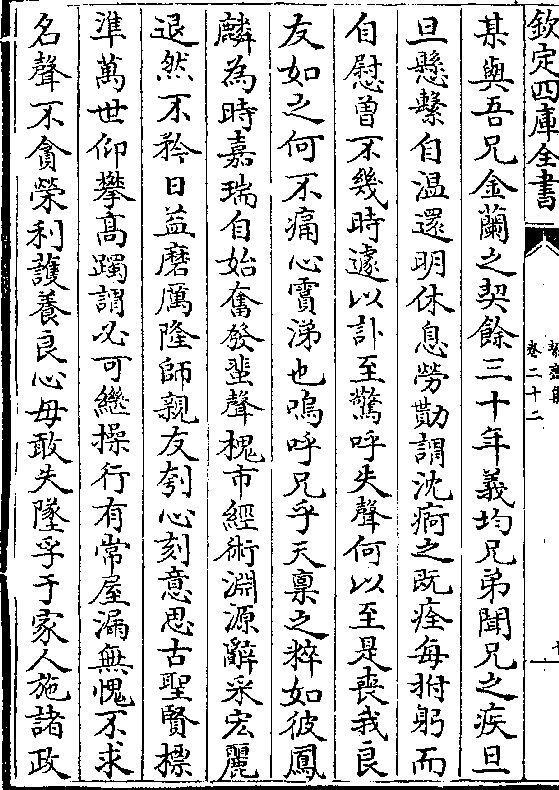 欽定四庫全書
卷二十二
某與吾兄金蘭之契餘三十年義均兄弟聞兄之疾旦
旦懸繫自温還明休息勞勩謂沈痾之既痊每拊躬而
自慰曽不幾時遽以訃至驚呼失聲何以至是喪我良
友如之何不痛心霣涕也嗚呼兄乎天稟之粹如彼鳳
麟為時嘉瑞自始奮發蜚聲槐市經術淵源辭采宏麗
退然不矜日益磨厲隆師親友刳心刻意思古聖賢標
準萬世仰攀髙躅謂必可繼操行有常屋漏無愧不求
名聲不貪榮利護養良心毋敢失墜孚于家人施諸政